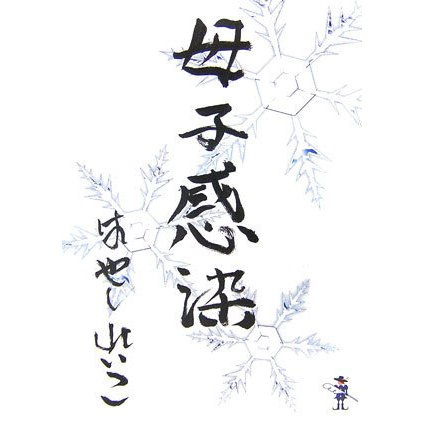 母子感染
はやしれいこ